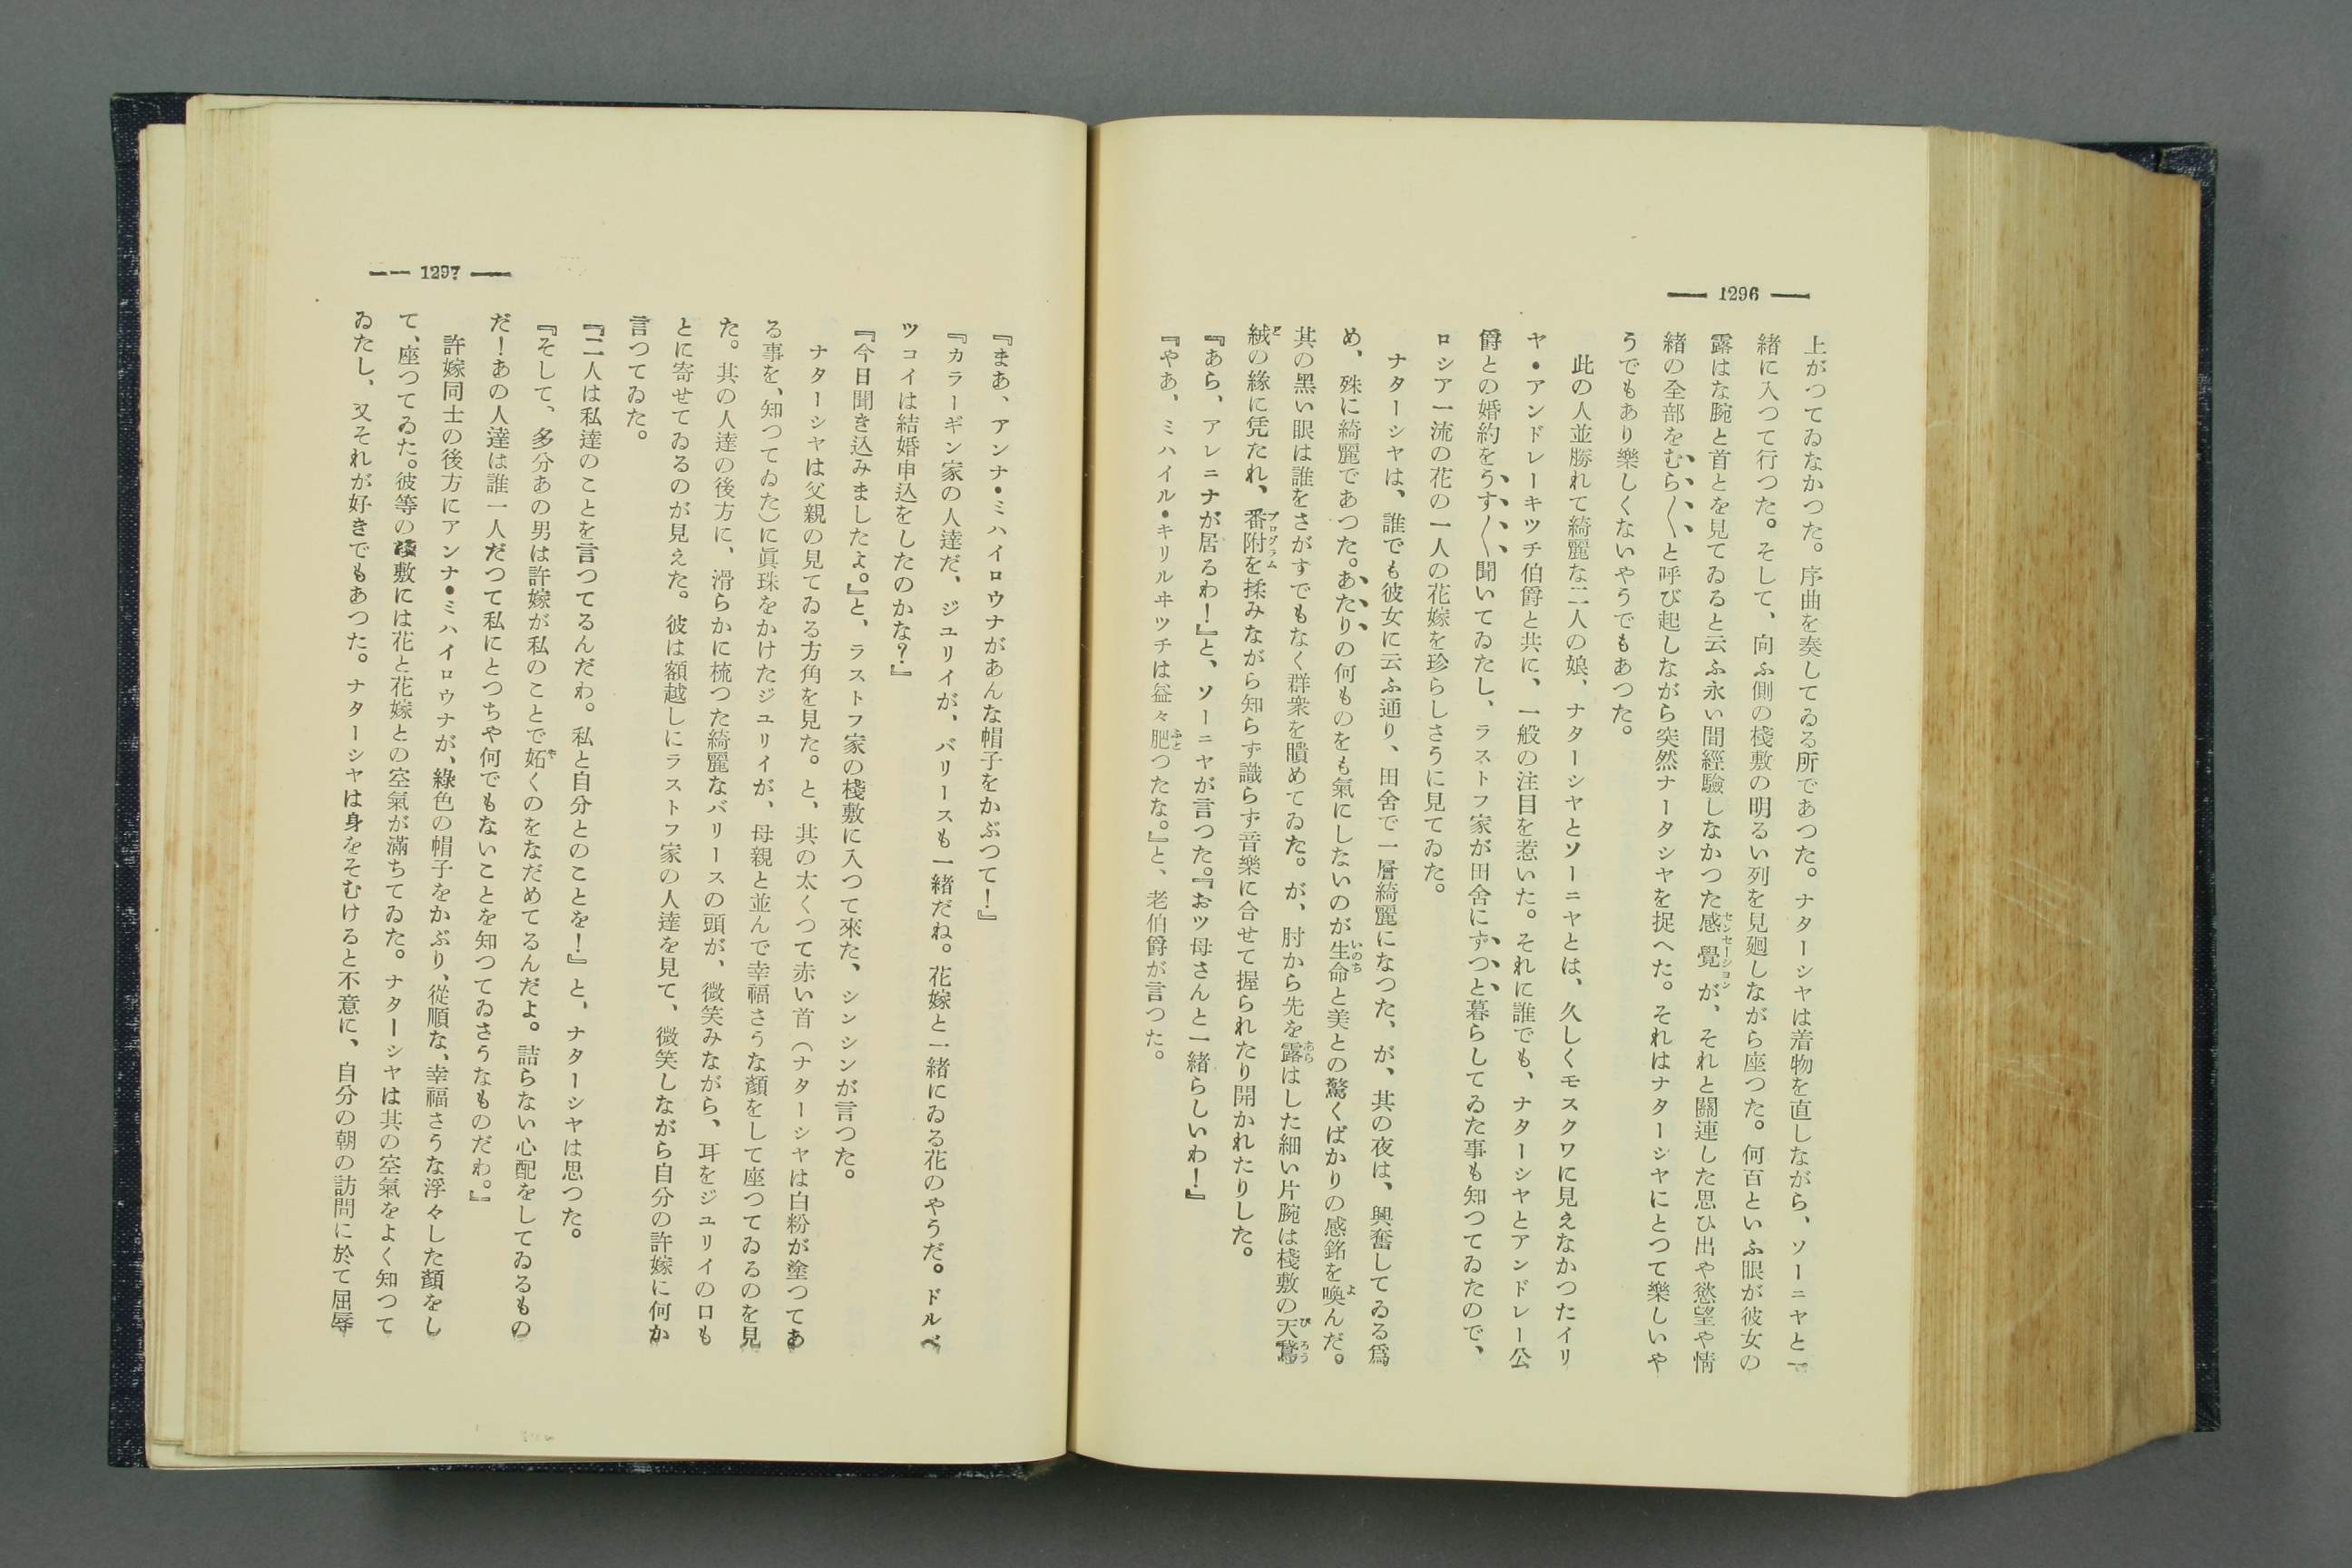 1296
上がつてゐなかつた。序曲を奏してゐる所であつた。ナターシヤは着物を直しながら、ソーニヤと一
緒に入つて行つた。そして、向ふ側の棧敷の明るい列を見廻しながら座つた。何百といふ眼が彼女の
露はな腕と首とを見てゐると云ふ永い間經驗しなかつた感覺が、それと關連した思ひ出や慾望や情
緒の全部をむら〱と呼び起しながら突然ナータシヤを捉へた。それはナターシヤにとつて樂しいや
うでもあり樂しくないやうでもあつた。
此の人並勝れて綺麗な二人の娘、ナターシヤとソーニヤとは、久しくモスクワに見えなかつたイリ
ヤ・アンドレーキツチ伯爵と共に、一般の注目を惹いた。それに誰でも、ナターシヤとアンドレー公
爵との婚約をうす〱聞いてゐたし、ラストフ家が田舍にずつと暮らしてゐた事も知つてゐたので、
ロシア一流の花の一人の花嫁を珍らしさうに見てゐた。
ナターシヤは、誰でも彼女に云ふ通り、田舍で一層綺麗になつた、が、其の夜は、興奮してゐる爲
め、殊に綺麗であつた。あたりの何ものをも氣にしないのが生命と美との驚くばかりの感銘を喚んだ。
其の黑い眼は誰をさがすでもなく群衆を瞶めてゐた。が、肘から先を露はした細い片腕は棧敷の天鵞
絨の緣に凭たれ、番附を揉みながら知らず識らず音樂に合せて握られたり開かれたりした。
『あら、アレニナが居るわ！』と、ソーニヤが言つた。『おツ母さんと一緒らしいわ！』
『やあ、ミハイル・キリルヰツチは益々肥つたな。』と、老伯爵が言つた。
1297
『まあ、アンナ・ミハイロウナがあんな帽子をかぶつて！』
『カラーギン家の人達だ、ジユリイが、バリースも一緒だね。花嫁と一緒にゐる花のやうだ。ドルベ
ツコイは結婚申込をしたのかな？』
『今日聞き込みましたよ。』と、ラストフ家の棧敷に入つて來た、シンシンが言つた。
ナターシヤは父親の見てゐる方角を見た。と、其の太くつて赤い首（ナターシヤは白粉が塗つてあ
る事を、知つてゐた）に眞珠をかけたジユリイが、母親と並んで幸福さうな顏をして座つてゐるのを見
た。其の人達の後方に、滑らかに梳つた綺麗なバリースの頭が、微笑みながら、耳をジユリイの口も
とに寄せてゐるのが見えた。彼は額越しにラストフ家の人達を見て、微笑しながら自分の許嫁に何か
言つてゐた。
『二人は私達のことを言つてるんだわ。私と自分とのことを！』と、ナターシヤは思つた。
『そして、多分あの男は許嫁が私のことで妬くのをなだめてるんだよ。詰らない心配をしてゐるもの
だ！あの人達は誰一人だつて私にとつちや何でもないことを知つてゐさうなものだわ。』
許嫁同士の後方にアンナ・ミハイロウナが、綠色の帽子をかぶり、從順な、幸福さうな浮々した顏をし
て、座つてゐた。彼等の棧敷には花と花嫁との空氣が滿ちてゐた。ナターシヤは其の空氣をよく知つて
ゐたし、又それが好きでもあつた。ナターシヤは身をそむけると不意に、自分の朝の訪問に於て屈辱